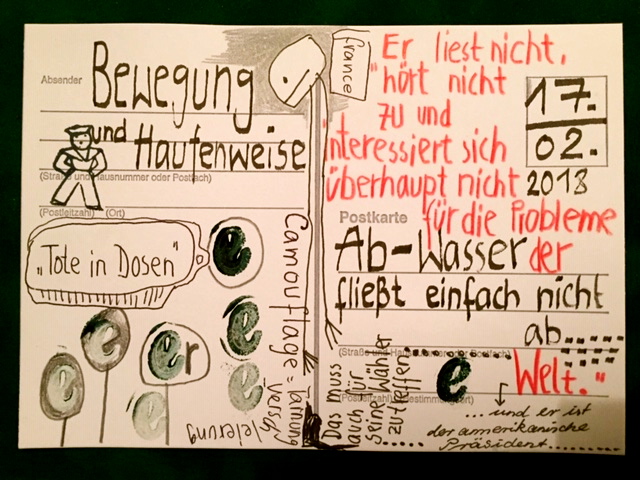 Absender
Bewegung
und Haufenweise
(Straße und Hausnummer oder Postfach)
(Postleitzahl) (Ort)
"Tote in Dosen"
e
e
e
er
e
e
e
Camouflage = Tarnung
Verschleierung
france
Er liest nicht,
"hört nicht
zu und
interessiert sich
überhaupt nicht
für die Probleme
der
Welt."
17.
02.
2018
Postkarte
Ab-Wasser
fließt einfach nicht
ab
(Straße und
(Postleitzahl)
Bestimmungsort)
e
Das muss
auch für
seine Wähler
zutreffen
... und er ist
der amerikanische
Präsident